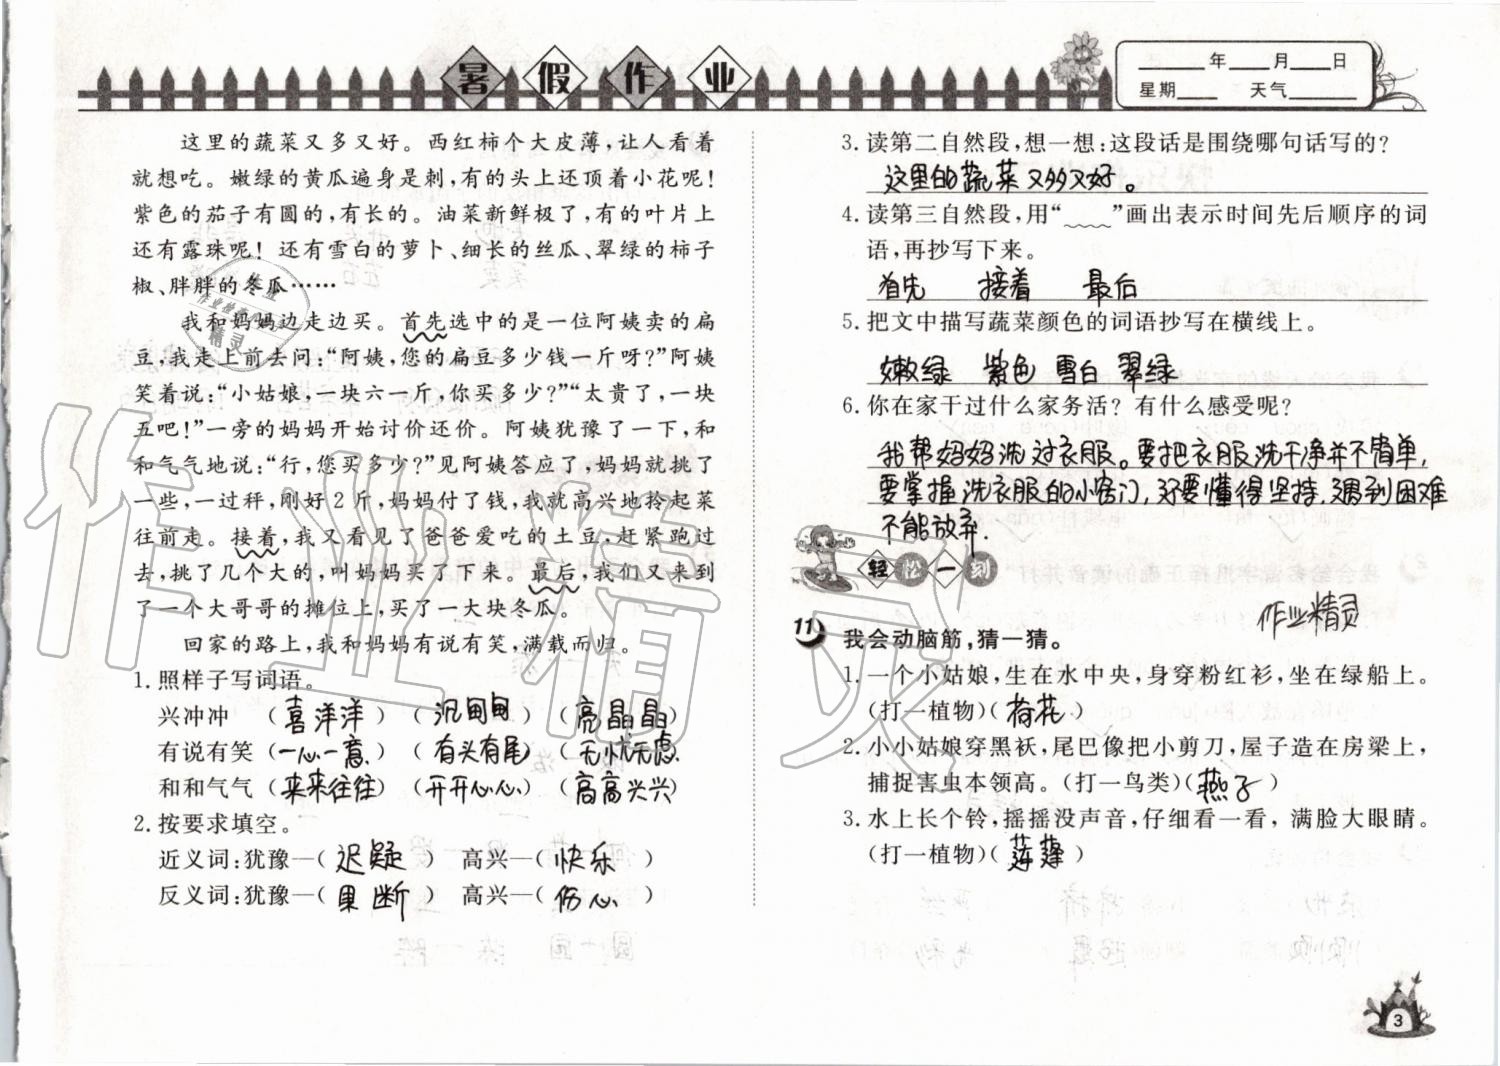 暑假作业
____年____月____日
星期____ 天气______
这里的蔬菜又多又好。西红柿个大皮薄,让人看着
就想吃。嫩绿的黄瓜遍身是刺,有的头上还顶着小花呢!
紫色的茄子有圆的,有长的。油菜新鲜极了,有的叶片上
还有露珠呢!还有雪白的萝卜、细长的丝瓜、翠绿的柿子
椒、胖胖的冬瓜……
我和妈妈边走边买。首先选中的是一位阿姨卖的扁
豆,我走上前去问:“阿姨,您的扁豆多少钱一斤呀?”阿姨
笑着说:“小姑娘,一块六一斤,你买多少?”“太贵了,一块
五吧!”一旁的妈妈开始讨价还价。阿姨犹豫了一下,和
和气气地说:“行,您买多少?”见阿姨答应了,妈妈就挑了
一些,一过秤,刚好2斤,妈妈付了钱,我就高兴地拎起菜
往前走。接着,我又看见了爸爸爱吃的土豆,赶紧跑过
去,挑了几个大的,叫妈妈买了下来。最后,我们又来到
了一个大哥哥的摊位上,买了一大块冬瓜。
回家的路上,我和妈妈有说有笑,满载而归。
1.照样子写词语。
兴冲冲 (喜洋洋) (沉甸甸) (亮晶晶)
有说有笑 (一心一意) (有头有尾) (无忧无虑)
和和气气 (来来往往) (开开心心) (高高兴兴)
2.按要求填空。
近义词:犹豫—(迟疑) 高兴—(快乐)
反义词:犹豫—(果断) 高兴—(伤心)
3.读第二自然段,想一想:这段话是围绕哪句话写的?
这里的蔬菜又多又好。
4.读第三自然段,用“﹏﹏”画出表示时间先后顺序的词
语,再抄写下来。
首先 接着 最后
5.把文中描写蔬菜颜色的词语抄写在横线上。
嫩绿 紫色 雪白 翠绿
6.你在家干过什么家务活?有什么感受呢?
我帮妈妈洗过衣服。要把衣服洗干净并不简单,
要掌握洗衣服的小窍门,还要懂得坚持,遇到困难
不能放弃.
轻松一刻
作业精灵
11 我会动脑筋,猜一猜。
1.一个小姑娘,生在水中央,身穿粉红衫,坐在绿船上。
(打一植物)(荷花)
2.小小姑娘穿黑袄,尾巴像把小剪刀,屋子造在房梁上,
捕捉害虫本领高。(打一鸟类)(燕子)
3.水上长个铃,摇摇没声音,仔细看一看,满脸大眼睛。
(打一植物)(莲蓬)
3
作业精灵